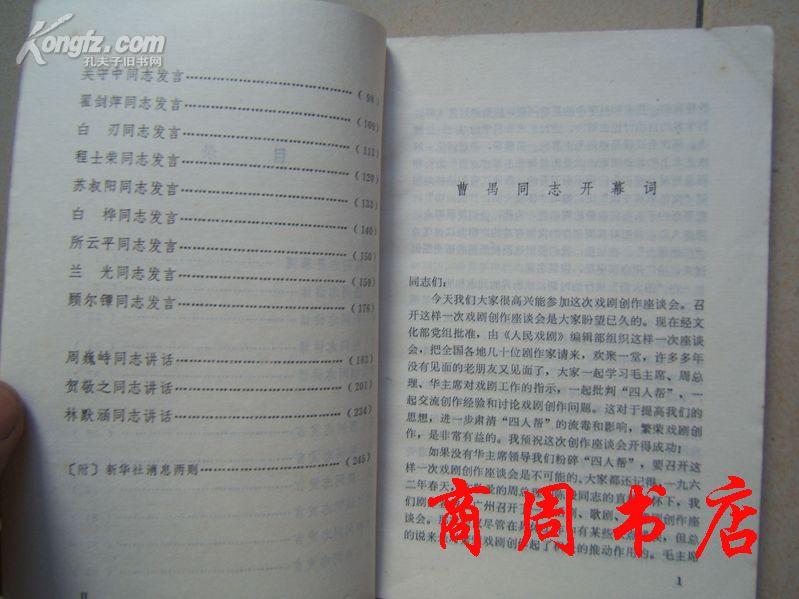 Kongfz.com
孔夫子旧书网
关守中同志发言……(98)
翟剑萍同志发言……(109)
白 刃同志发言……(112)
程士荣同志发言……(120)
苏叔阳同志发言……(133)
白 桦同志发言……(140)
所云平同志发言……(150)
兰 光同志发言……(159)
顾尔镡同志发言……(176)
周巍峙同志讲话……(183)
贺敬之同志讲话……(201)
林默涵同志讲话……(234)
〔附〕新华社消息两则……(245)
II
曹禺同志开幕词
同志们:
今天我们大家很高兴能参加这次戏剧创作座谈会。召
开这样一次戏剧创作座谈会是大家盼望已久的。现在经文
化部党组批准,由《人民戏剧》编辑部组织这样一次座谈
会,把全国各地几十位剧作家请来,欢聚一堂,许多多年
没有见面的老朋友又见面了,大家一起学习毛主席、周总
理、华主席对戏剧工作的指示,一起批判“四人帮”,一
起交流创作经验和讨论戏剧创作问题。这对于提高我们的
思想,进一步肃清“四人帮”的流毒和影响,繁荣戏剧创
作,是非常有益的。我预祝这次创作座谈会开得成功!
如果没有华主席领导我们粉碎“四人帮”,要召开这
样一次戏剧创作座谈会是不可能的。大家都还记得,一九六
二年春天,敬爱的周总理 同志的直 怀下,我
们剧 广州召开了 剧、歌剧、 剧创作座
谈会。 议尽管在具 事中有某些 陷,但总
的说来 戏剧创 起了积 的推动作用的。毛主席
1
商周书店